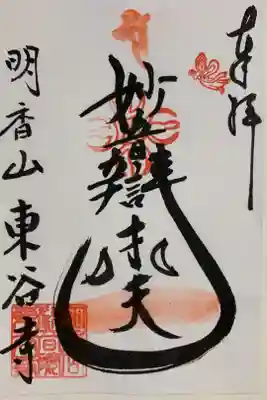 奉拝
妙音辯才天
明香山 東谷寺